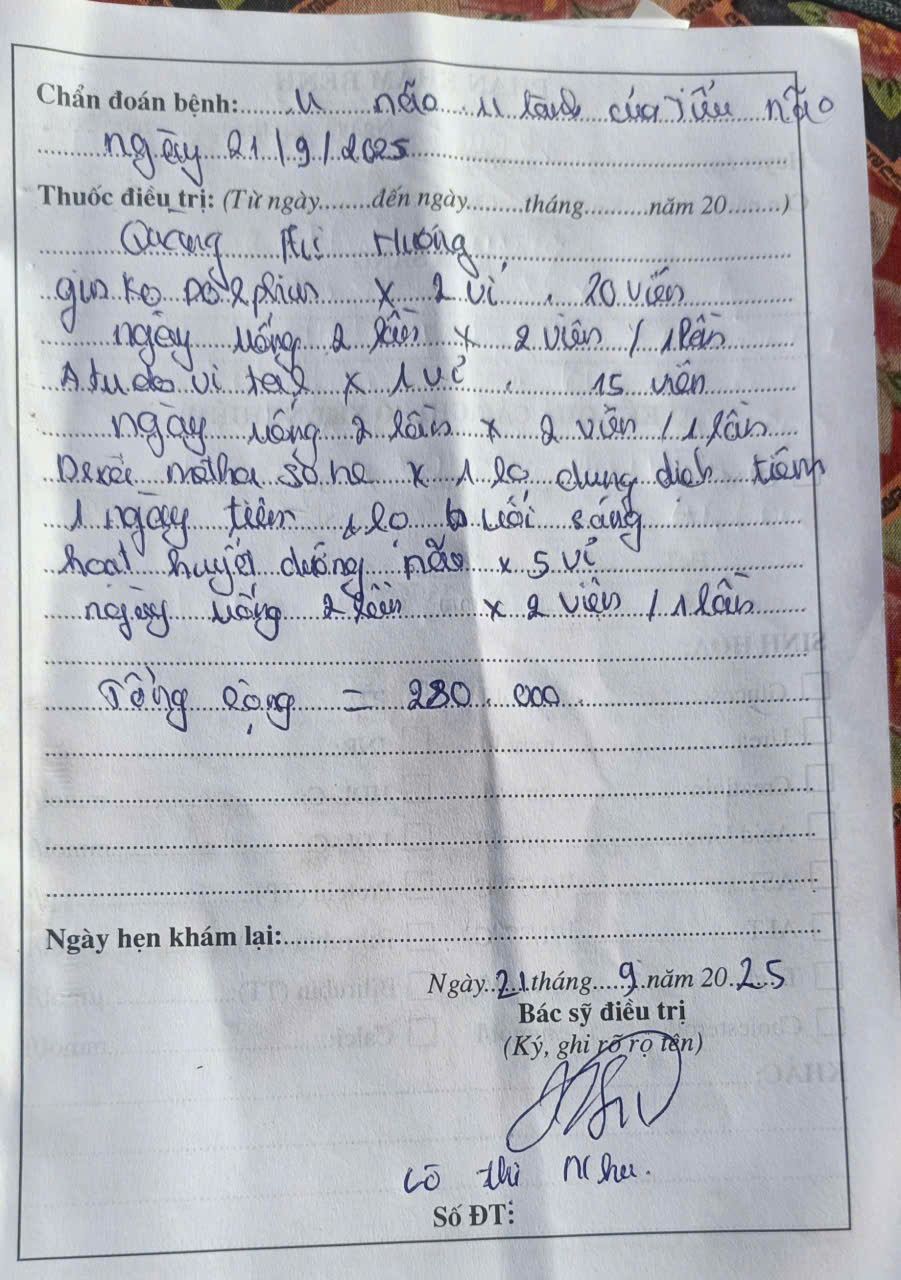 Chẩn đoán bệnh: u não u lành của Tiểu não
ngày 21/9/2025
Thuốc điều trị: (Từ ngày........đến ngày.........tháng..........năm 20........)
Quàng Thị Hương
x 2 vỉ. 20 viên
ngày uống 2 lần x 2 viên / 1 lần
A tu do vi tal x 1 vỉ. 15 viên
ngày uống 2 lần x 2 viên / 1 lần
Dexa metha so ne x 1 lo dung dich tiêm
1 ngày tiêm 1 lo buổi sáng
hoạt huyết dưỡng não x 5 vỉ
ngày uống 2 lần x 2 viên / 1 lần
Tổng cộng = 280.000
Ngày hẹn khám lại:
Ngày 21 tháng 9 năm 20 25
Bác sỹ điều trị
(Ký, ghi rõ rọ tên)
Lò thị Như.
Số ĐT: